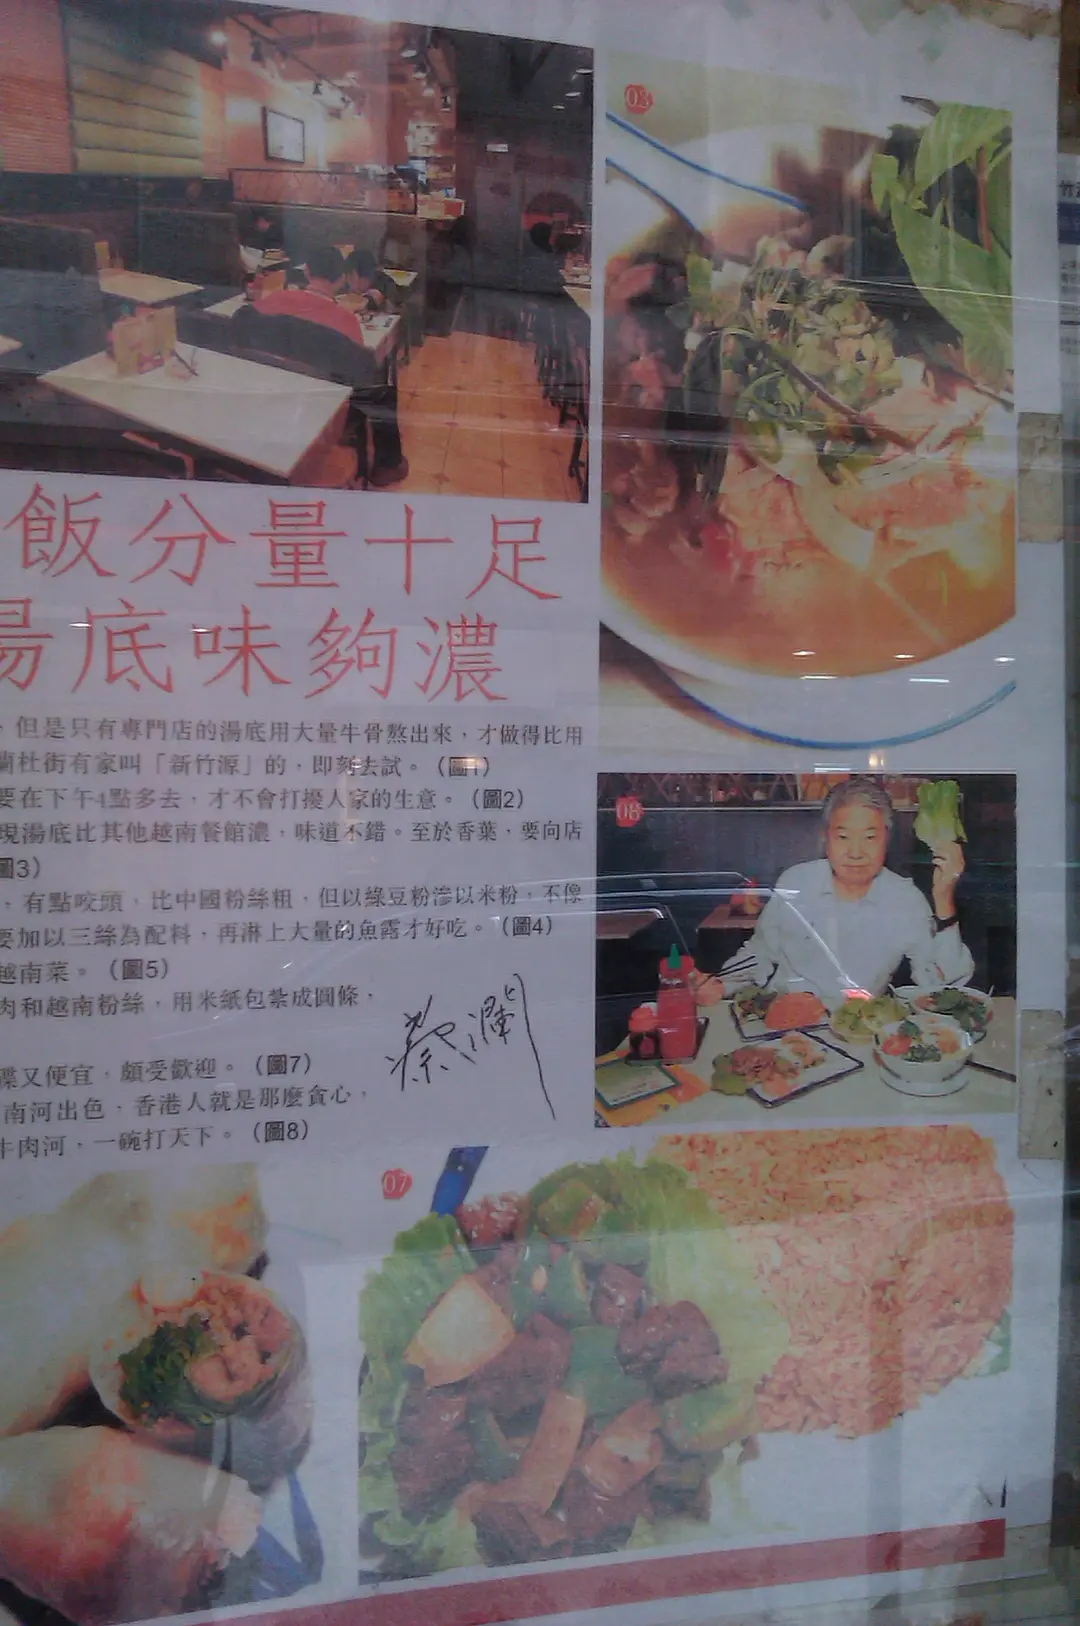 02
飯分量十足
湯底味夠濃
，但是只有專門店的湯底用大量牛骨熬出來，才做得比用
蘭杜街有家叫「新竹源」的，即刻去試。（圖1）
要在下午4點多去，才不會打擾人家的生意。（圖2）
現湯底比其他越南餐館濃，味道不錯。至於香葉，要向店
圖3）
，有點咬頭，比中國粉絲粗，但以綠豆粉滲以米粉，不像
要加以三絲為配料，再淋上大量的魚露才好吃。（圖4）
越南菜。（圖5）
肉和越南粉絲，用米紙包紮成圓條，
碟又便宜，頗受歡迎。（圖7）
南河出色，香港人就是那麼貪心，
牛肉河，一碗打天下。（圖8）
蔡瀾
08
07